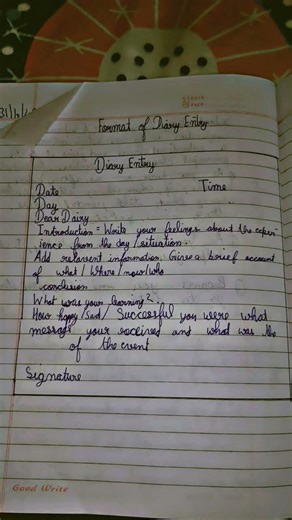 31/
Format of Diary Entry
Diary Entry
Date Time
Day
Dear Dairy
Introduction = Write your feelings about the exper
ience from the day / situation.
Add relavent information. Give a brief account
of what / Where / how / who
conclusion
What was your learning?
How happy / sad / Successful you were what
message your received and what was the
of the event
Signature
Good Write